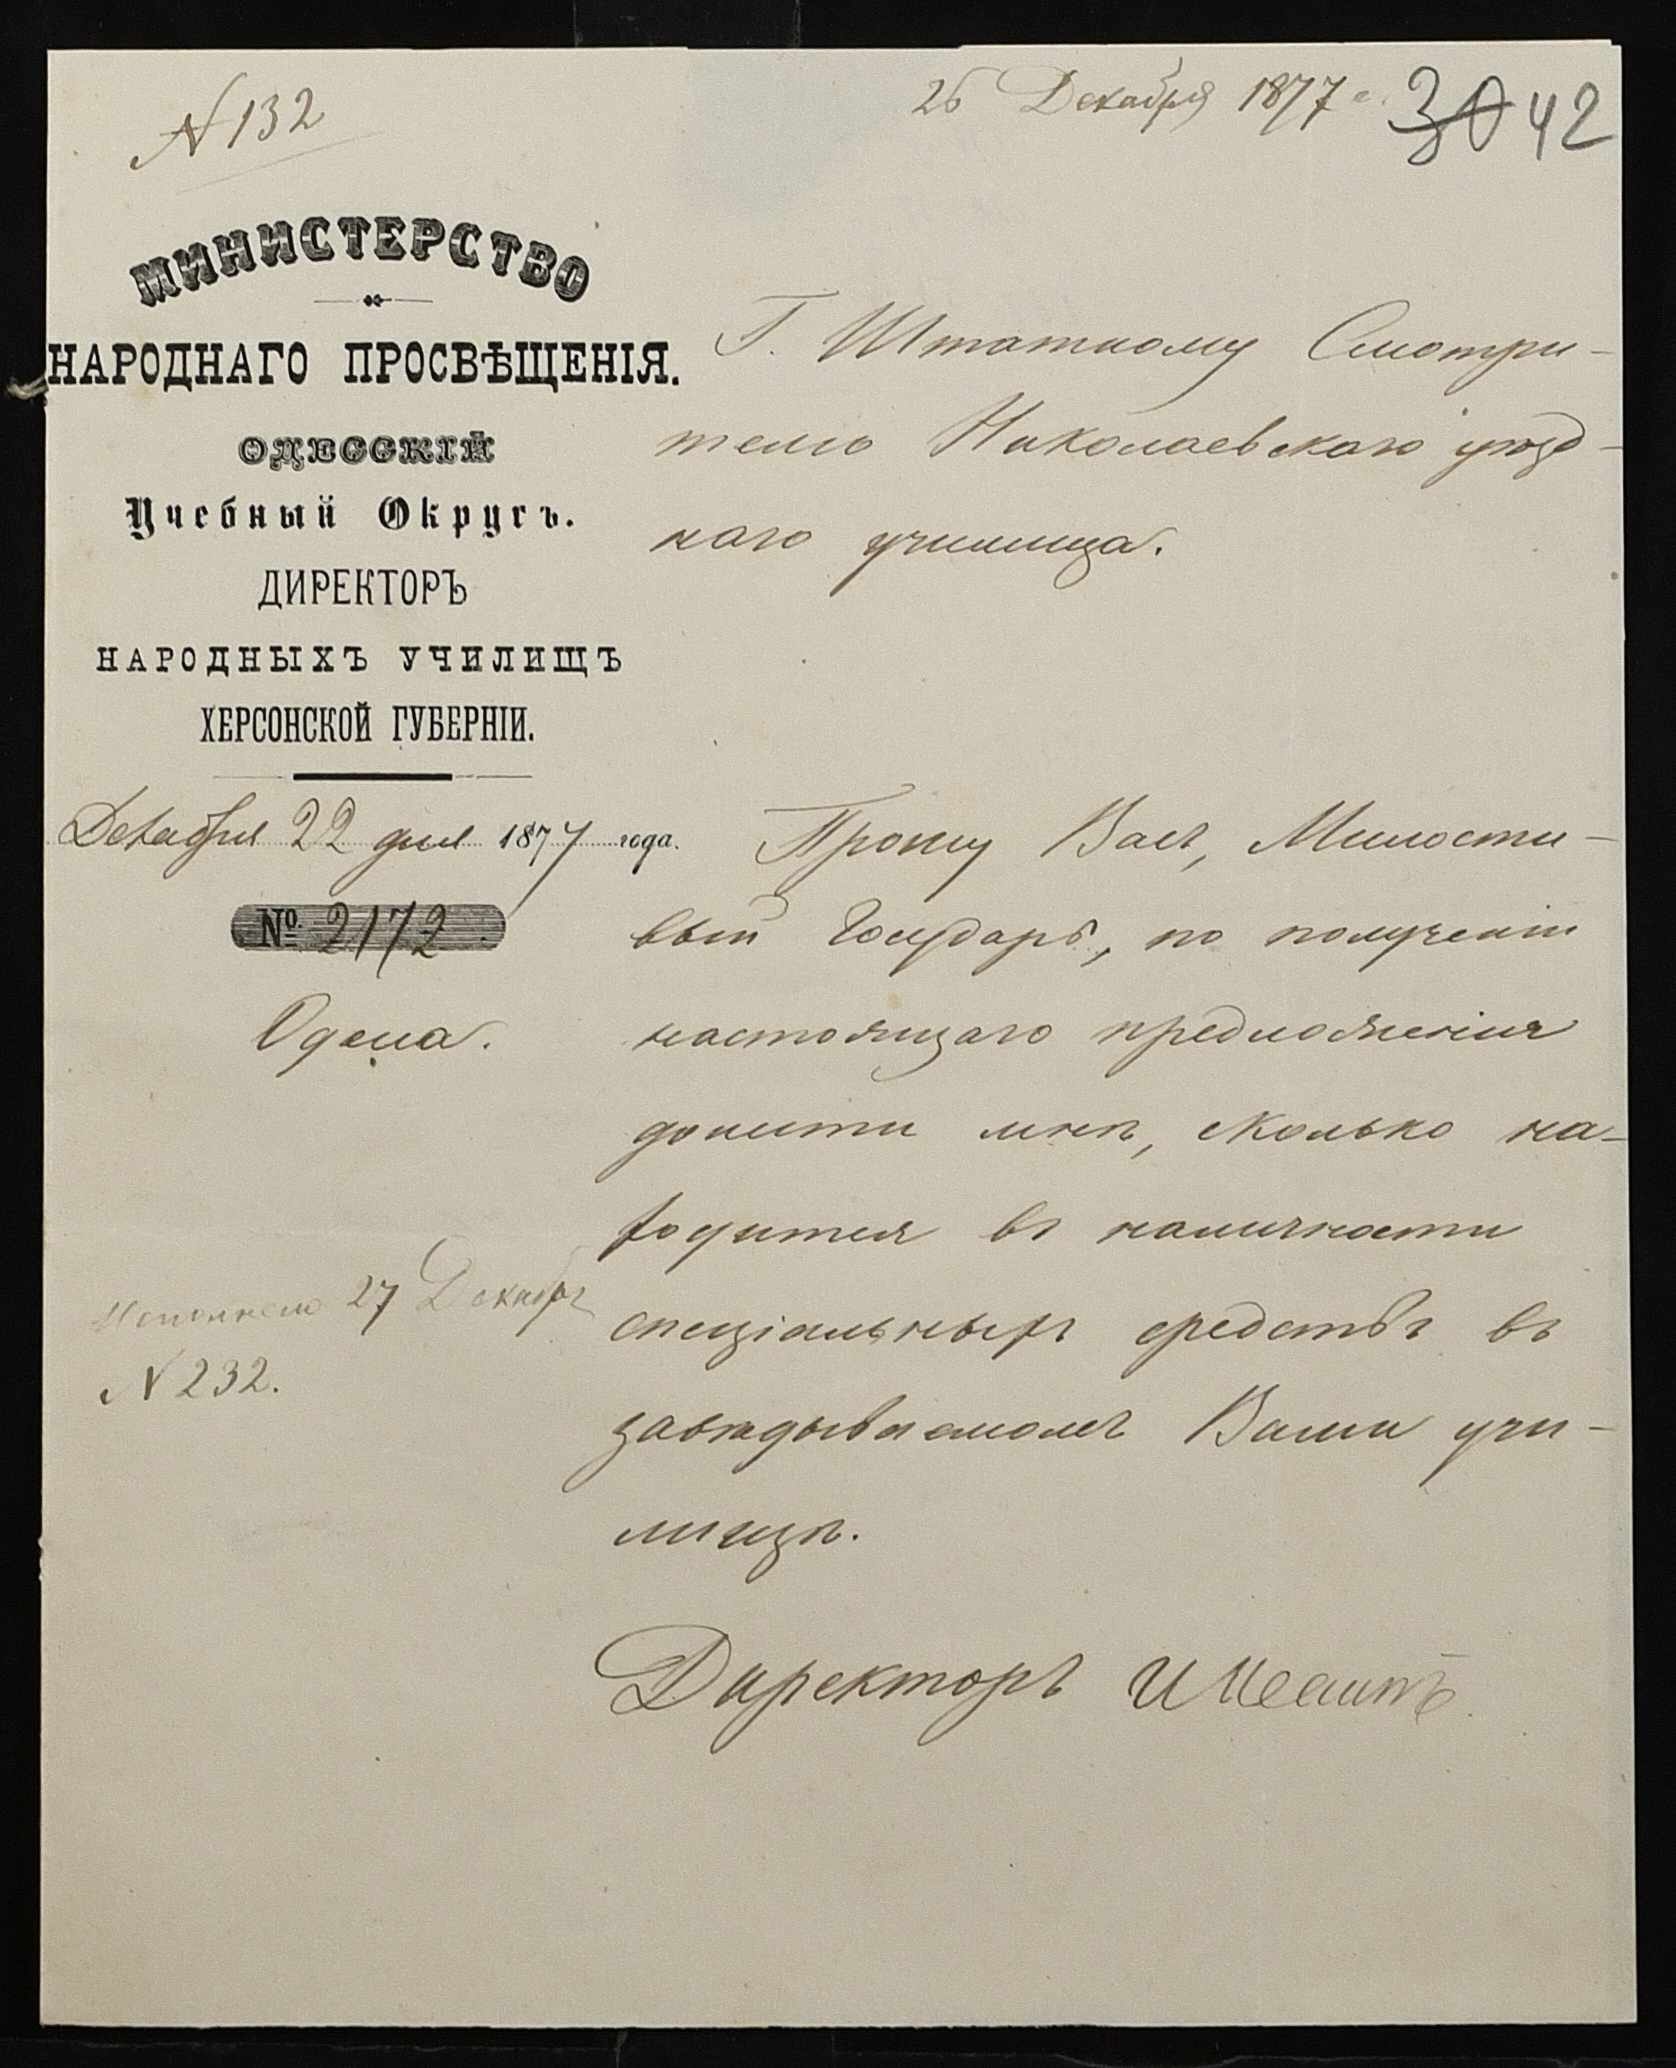 N 132
26 Декабря 1877 г.
30 42
МИНИСТЕРСТВО
НАРОДНАГО ПРОСВѢЩЕНІЯ.
ОДЕССКІЙ
Учебный Округъ.
ДИРЕКТОРЪ
НАРОДНЫХЪ УЧИЛИЩЪ
ХЕРСОНСКОЙ ГУБЕРНІИ.
Декабря 22 дня 1877 года.
№ 2172
Одесса.
Г. Штатному Смотри-
телю Николаевскаго уѣзд-
наго училища.
Прошу Васъ, Милости-
вый Государь, по полученіи
настоящаго предложенія
донести мнѣ, сколько на-
ходится въ наличности
спеціальныхъ средствъ въ
завѣдываемомъ Вами учи-
лищѣ.
Исполнено 27 Декабря
N 232.
Директоръ И